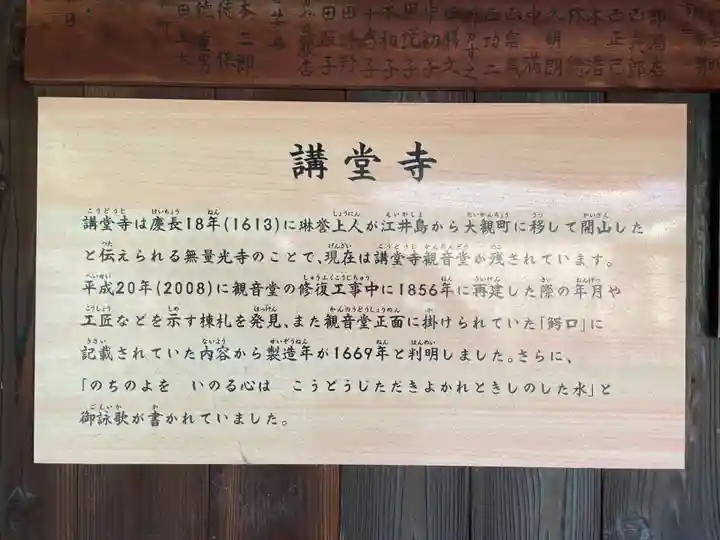 講堂寺
講堂寺は慶長18年(1613)に琳誉上人が江井島から大観町に移して開山した
と伝えられる無量光寺のことで、現在は講堂寺観音堂が残されています。
平成20年(2008)に観音堂の修復工事中に1856年に再建した際の年月や
工匠などを示す棟札を発見、また観音堂正面に掛けられていた「鰐口」に
記載されていた内容から製造年が1669年と判明しました。さらに、
「のちのよを　いのる心は　こうどうじただきよかれときしのした水」と
御詠歌が書かれていました。